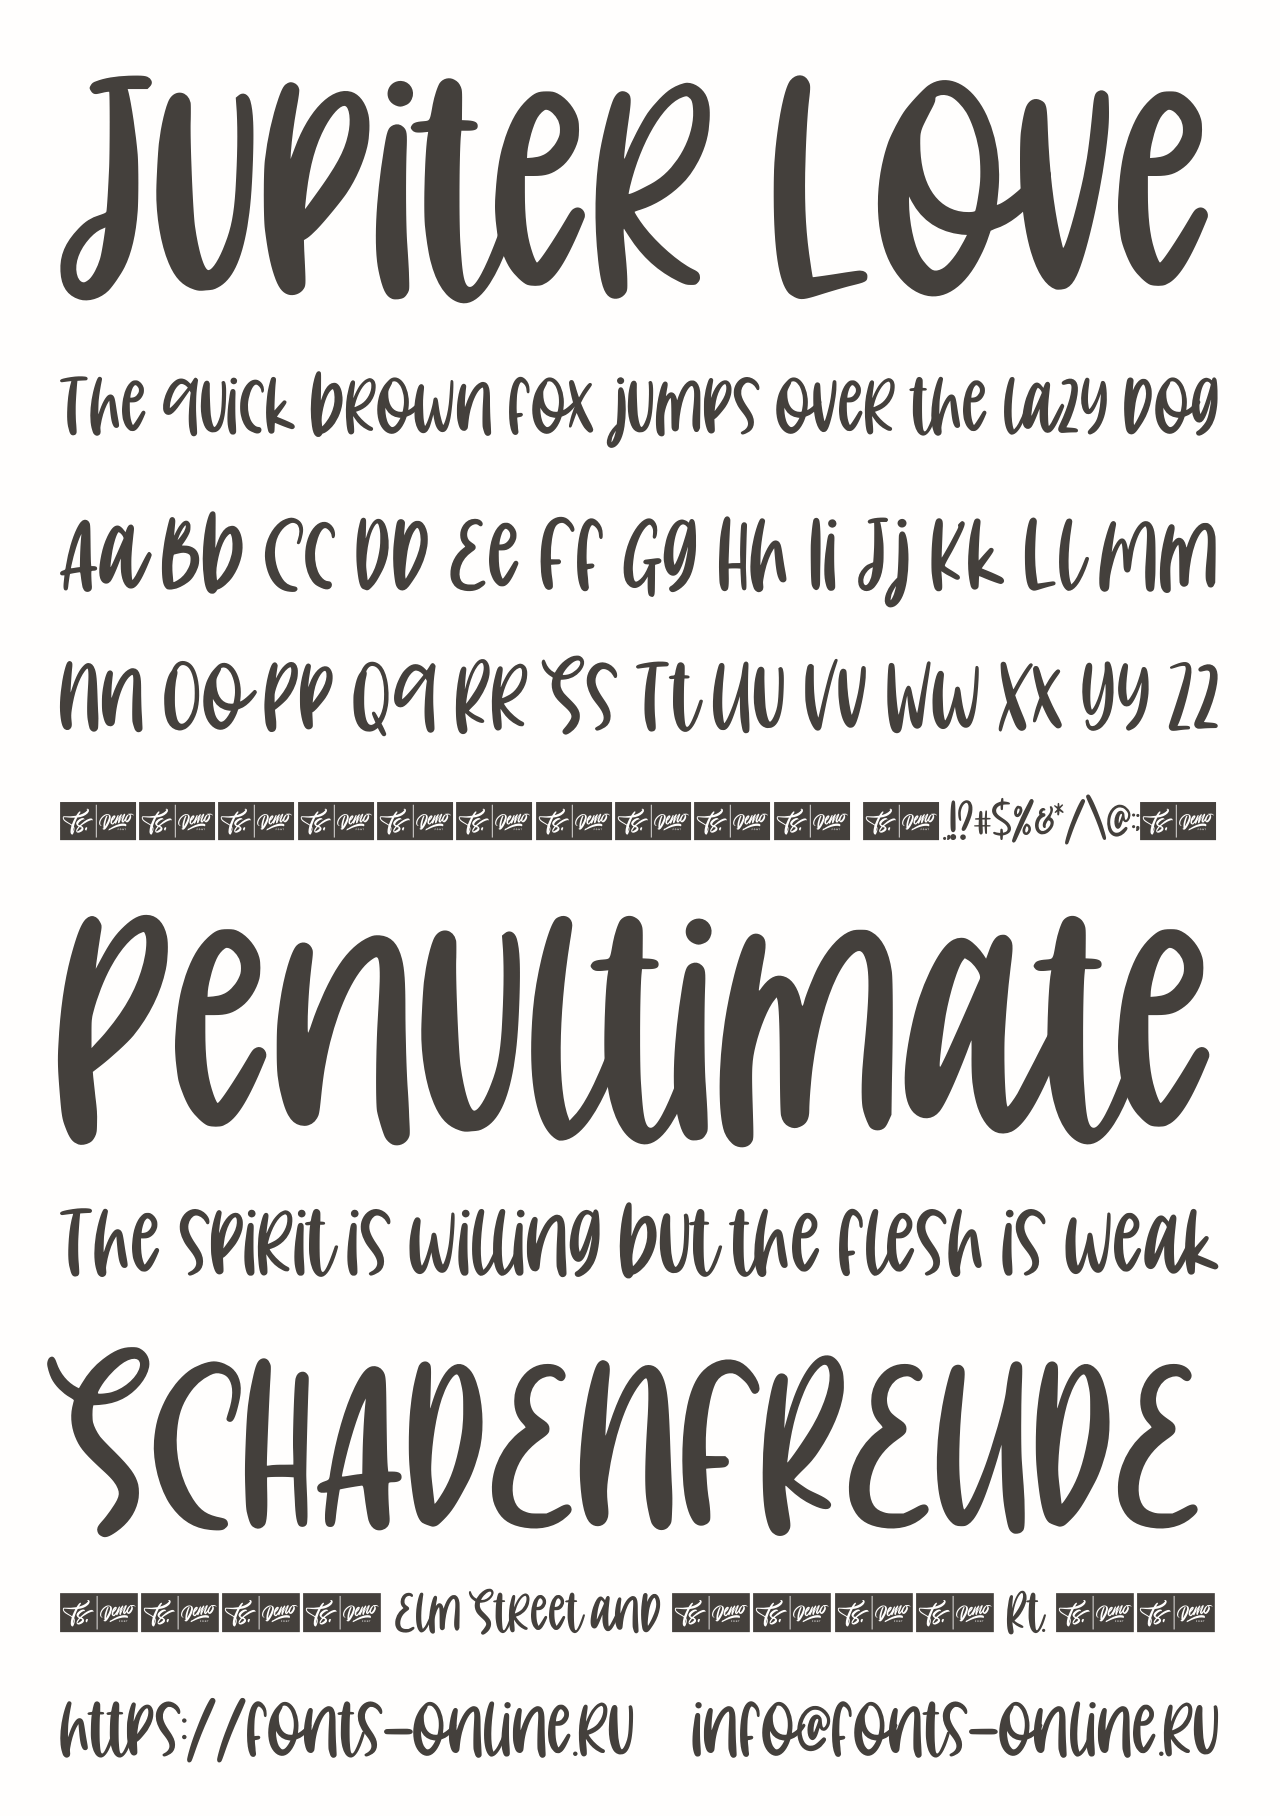 Jupiter Love
The quick brown fox jumps over the lazy dog
Aa Bb Cc Dd Ee Ff Gg Hh Ii Jj Kk Ll Mm
Nn Oo Pp Qq Rr Ss Tt Uu Vv Ww Xx Yy Zz
Ts. Demo FONT Ts. Demo FONT Ts. Demo FONT Ts. Demo FONT Ts. Demo FONT Ts. Demo FONT Ts. Demo FONT Ts. Demo FONT Ts. Demo FONT Ts. Demo FONT Ts. Demo FONT .,!?#$%&*/\@:; Ts. Demo FONT
Penultimate
The spirit is willing but the flesh is weak
SCHADENFREUDE
Ts. Demo FONT Ts. Demo FONT Ts. Demo FONT Ts. Demo FONT Elm Street and Ts. Demo FONT Ts. Demo FONT Ts. Demo FONT Ts. Demo FONT Rt. Ts. Demo FONT Ts. Demo FONT
https://fonts-online.ru info@fonts-online.ru